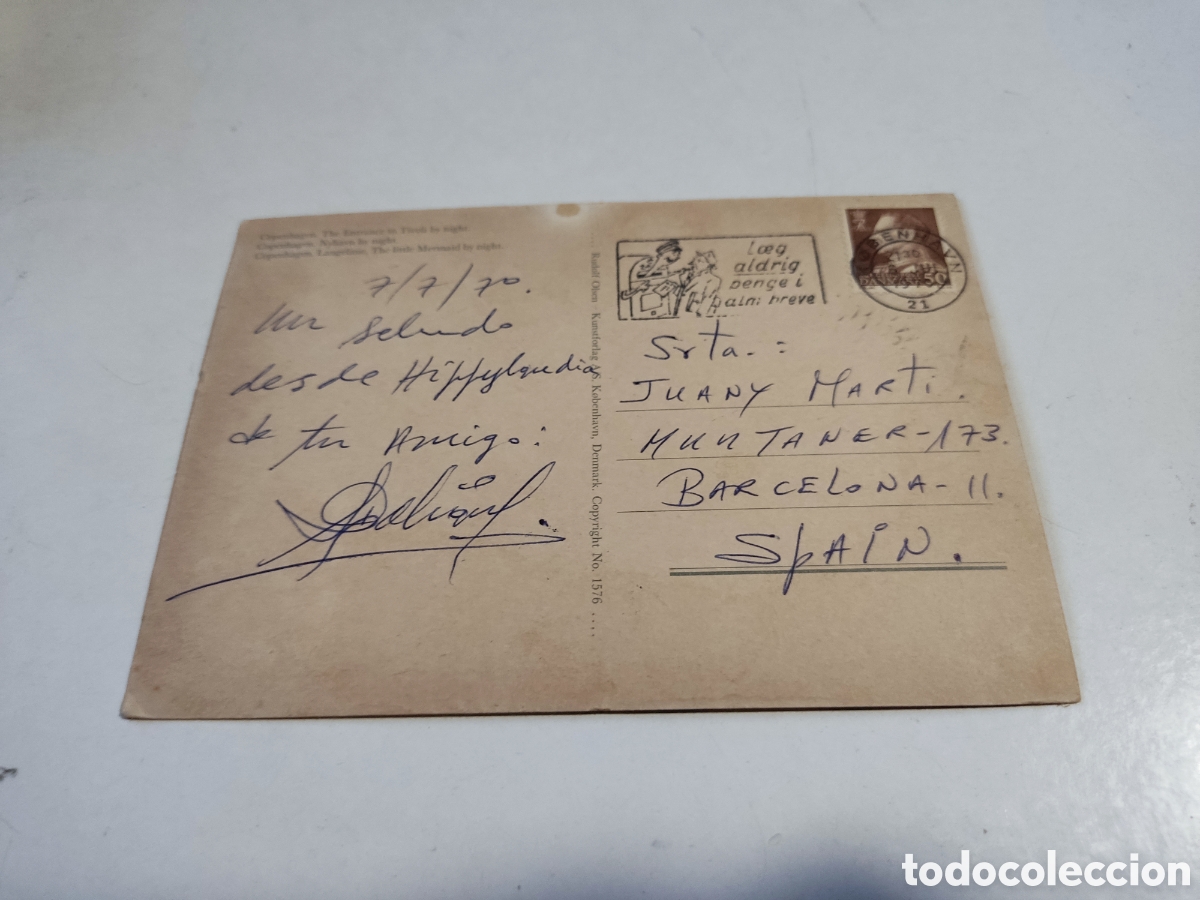 Copenhagen. The Entrance to Tivoli by night.
Copenhagen. Nyhavn by night.
Copenhagen. Langelinie, The little Mermaid by night.
7/7/70.
Un saludo
desde Hippylandia
de tu Amigo:
Rudolf Olsen - Kunstforlag A/S. København, Denmark. Copyright No. 1576 ....
læg
aldrig
penge i
alm: breve
KØBENHAVN
21
Srta.:
JUANY MARTi.
MUNTANER-173.
BARCELONA-11.
SPAIN.
todocoleccion